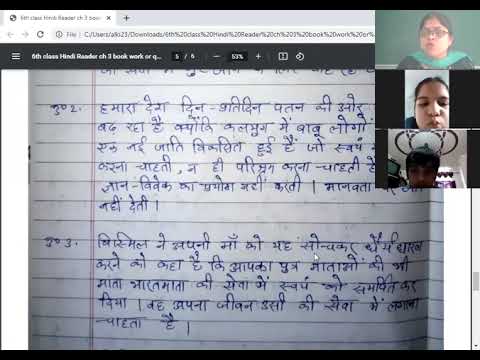 6th class Hindi Reader ch 3 boo
C:/Users/alki23/Downloads/6th%20class%20Hindi%20Reader%20ch%203%20book%20work%20or%
6th class Hindi Reader ch 3 book work or q...
5 / 6
53%
उ०2. हमारा देश दिन-प्रतिदिन पतन की ओर
बढ़ रहा है क्योंकि कलयुग में बाबू लोगों
एक नई जाति विकसित हुई है जो स्वयं
करना चाहती, न ही परिश्रम करना चाहती है
ज्ञान-विवेक का प्रयोग नहीं करती। मानवता
नहीं देती।
उ०3. बिस्मिल ने अपनी माँ को यह सोचकर धैर्य धारण
करने को कहा है कि आपका पुत्र माताओं की भी
माता भारतमाता की सेवा में स्वयं को समर्पित कर
दिया। वह अपना जीवन उसी की सेवा में लगाना
चाहता है।